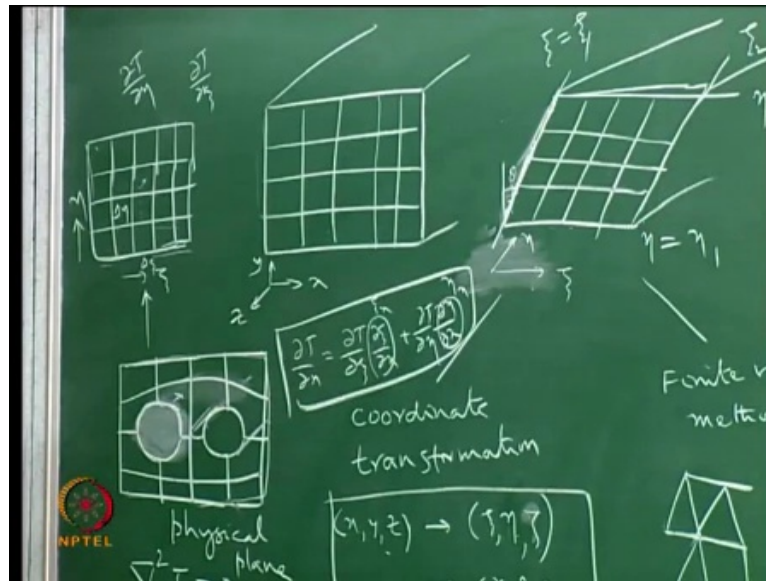 ∂T/∂η ∂T/∂ξ
ξ = ξ₁
η
Δη
η
Δξ ξ
y
x
z
η
ξ
η = η₁
∂T/∂x = ∂T/∂ξ (∂ξ/∂x) + ∂T/∂η (∂η/∂x)
ξx ηx
coordinate
transformation
Finite
metho
physical
plane
(x, y, z) → (ξ, η, ζ)
∇²T
NPTEL